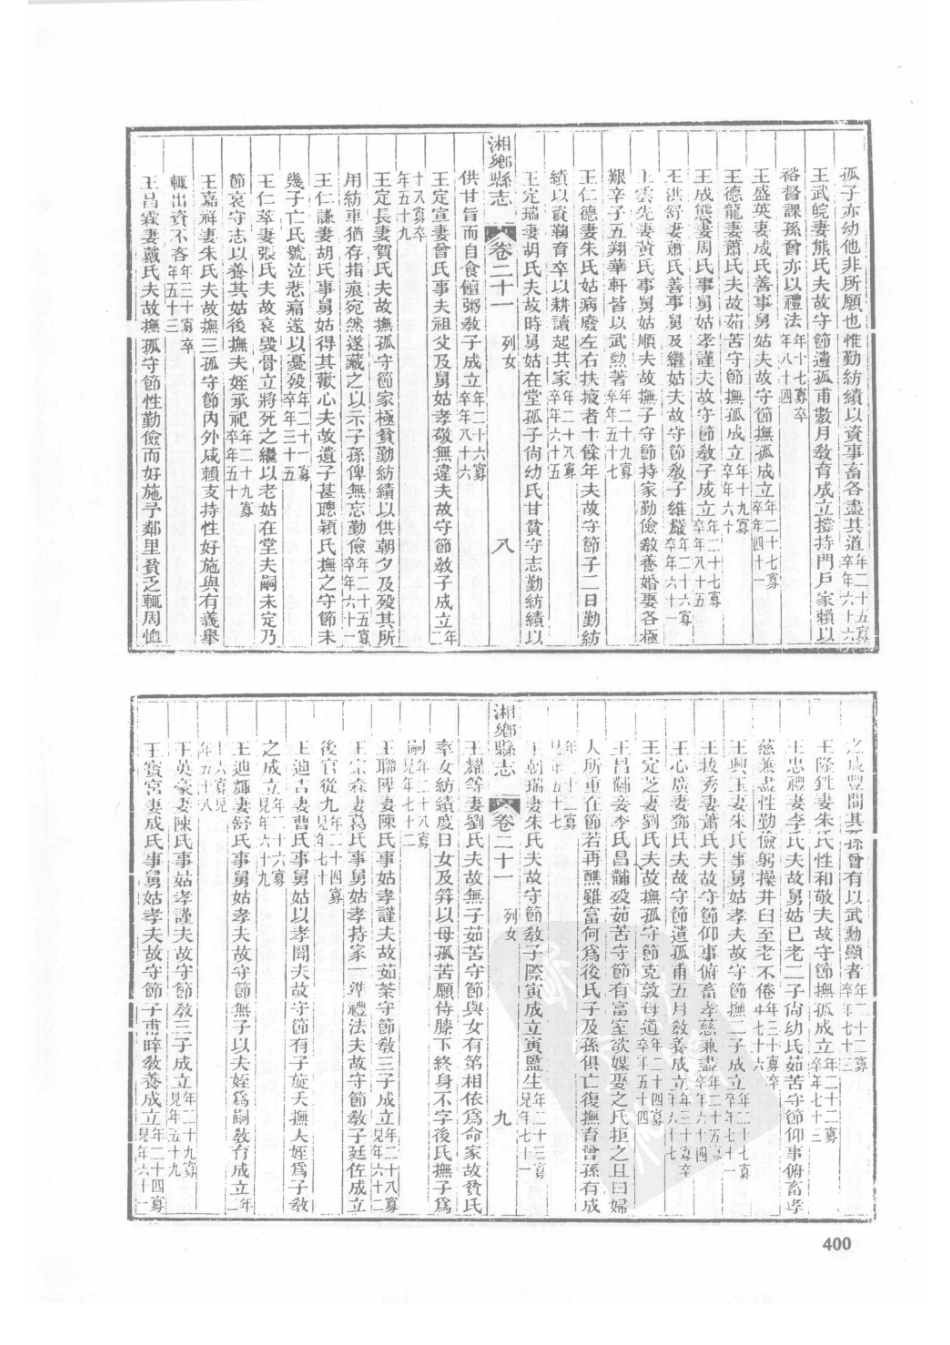 孤子亦幼他非所願也惟勤紡績以資事畜各盡其道年二十五寡卒年六十六
王武皖妻熊氏夫故守節遺孤甫數月敎育成立撐持門戶家賴以
裕督課孫曾亦以禮法年十七寡卒年八十四
王盛英妻成氏善事舅姑夫故守節撫孤成立年二十七寡卒年四十一
王德龍妻蕭氏夫故茹苦守節撫孤成立年十九寡卒年六十
王成熊妻周氏事舅姑孝謹夫故守節敎子成立年二十七寡卒年八十五
王洪舒妻蕭氏善事舅及繼姑夫故守節敎子維嶽年二十六寡卒年六十一
王雲先妻黃氏事舅姑順夫故撫子守節持家勤儉敎養婚娶各極
艱辛子五翔華軒皆以武勳著年二十九寡卒年五十七
王仁德妻朱氏姑病廢左右扶掖者十餘年夫故守節子二日勤紡
績以資鞠育卒以耕讀起其家年二十八寡卒年六十五
王定瑞妻胡氏夫故時舅姑在堂孤子尙幼氏甘貧守志勤紡績以
湘鄕縣志 卷二十一 列女 八
供甘旨而自食饘粥敎子成立年二十六寡卒年八十六
王定宣妻曾氏事夫祖父及舅姑孝敬無違夫故守節敎子成立年二
十八寡卒年五十九
王定長妻賀氏夫故撫孤守節家極貧勤紡績以供朝夕及歿其所
用紡車猶存指痕宛然遂藏之以示子孫俾無忘勤儉年二十五寡卒年六十一
王仁謙妻胡氏事舅姑得其歡心夫故遺子甚聰穎氏撫之守節未
幾子亡氏號泣悲痛遂以憂歿年二十一寡卒年三十五
王仁萃妻張氏夫故哀毀骨立將死之繼以老姑在堂夫嗣未定乃
節哀守志以養其姑後撫夫姪承祀年二十九寡卒年五十
王嘉祥妻朱氏夫故撫三孤守節內外咸賴支持性好施與有義舉
輒出資不吝年三十寡卒年五十三
王昌霖妻戴氏夫故撫孤守節性勤儉而好施予鄰里貧乏輒周恤
之歲豐間其孫曾有以武勳顯者年二十二寡卒年七十三
王隆甡妻朱氏性和敬夫故守節撫孤成立年二十二寡卒年七十三
王忠禮妻李氏夫故舅姑已老二子尙幼氏茹苦守節仰事俯畜孝
慈兼盡性勤儉躬操井臼至老不倦年三十寡卒年七十六
王興玉妻朱氏事舅姑孝夫故守節撫二子成立年二十七寡卒年七十一
王拔秀妻蕭氏夫故守節仰事俯畜孝慈兼盡年二十五寡卒年六十四
王心廣妻鄧氏夫故守節遺孤甫五月敎養成立年三十寡卒年六十七
王定之妻劉氏夫故撫孤守節克敦母道年二十四寡卒年五十四
王昌黼妾李氏昌黼歿茹苦守節有富室欲媒娶之氏拒之曰婦
人所重在節若再醮雖富何爲後氏子及孫俱亡復撫育曾孫有成
年二十二寡見年五十七
王朝瑞妻朱氏夫故守節敎子際寅成立寅監生年二十三寡見年七十一
湘鄕縣志 卷二十一 列女 九
王耀等妻劉氏夫故無子茹苦守節與女有第相依爲命家故貧氏
率女紡績度日女及笄以母孤苦願侍膝下終身不字後氏撫子爲
嗣年二十八寡見年七十二
王聯陞妻陳氏事姑孝謹夫故茹荼守節敎三子成立年二十八寡見年六十二
王宗霖妻葛氏事舅姑孝持家一準禮法夫故守節敎子廷佐成立
後官從九年二十四寡見年七十
王迪吉妻曹氏事舅姑以孝聞夫故守節有子旋夭撫夫姪爲子敎
之成立年二十六寡見年六十九
王迪輝妻舒氏事舅姑孝夫故守節無子以夫姪爲嗣敎育成立年二
十六寡見年五十八
王英豪妻陳氏事姑孝謹夫故守節敎三子成立年二十九寡見年五十九
王賓宮妻成氏事舅姑孝夫故守節子甫晬敎養成立年二十四寡見年六十一
400